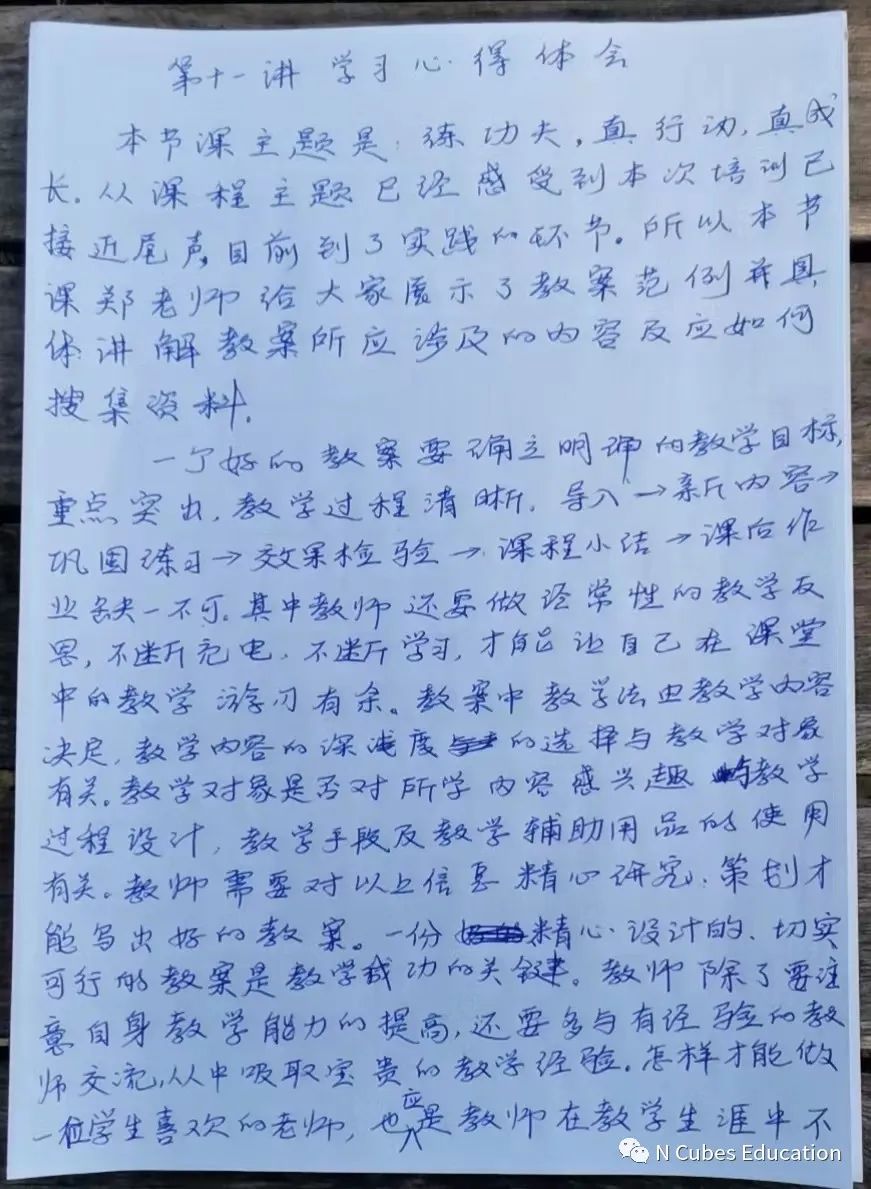 第十一讲 学习心得体会
本节课主题是：练功夫，真行动，真成
长。从课程主题已经感受到本次培训已
接近尾声，目前到了实践的环节。所以本节
课郑老师给大家展示了教案范例并具
体讲解教案所应涉及的内容及应如何
搜集资料。
一个好的教案要确立明确的教学目标，
重点突出，教学过程清晰。导入→新内容→
巩固练习→效果检验→课程小结→课后作
业缺一不可。其中教师还要做经常性的教学反
思，不断充电，不断学习，才能让自己在课堂
中的教学游刃有余。教案中教学法由教学内容
决定，教学内容的深浅度的选择与教学对象
有关。教学对象是否对所学内容感兴趣与教学
过程设计，教学手段及教学辅助用品的使用
有关。教师需要对以上信息精心研究、策划才
能写出好的教案。一份精心设计的、切实
可行的教案是教学成功的关键。教师除了要注
意自身教学能力的提高，还要多与有经验的教
师交流，从中吸取宝贵的教学经验。怎样才能做
一位学生喜欢的老师，也应是教师在教学生涯中不
N Cubes Education